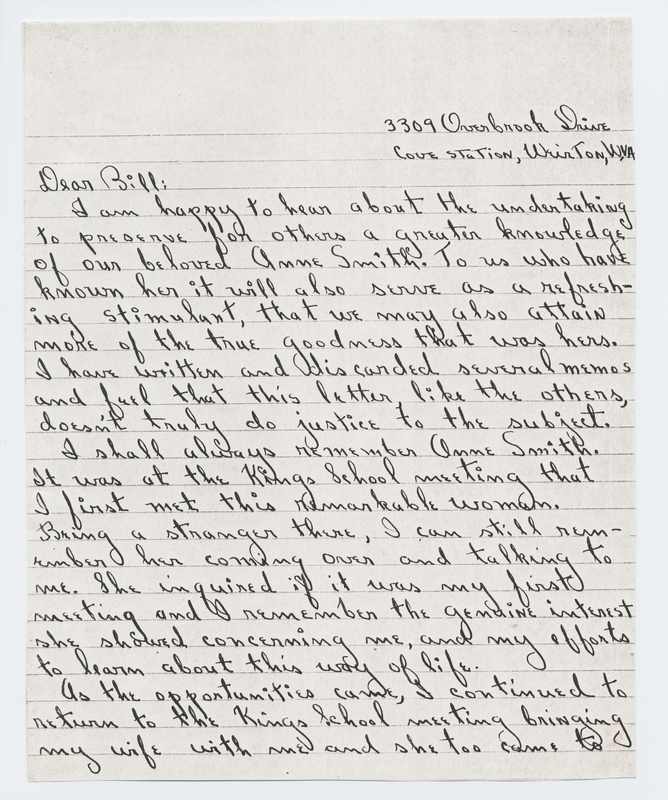 3309 Overbrook Drive
Cove Station, Weirton, W.VA
Dear Bill:
I am happy to hear about the undertaking
to preserve for others a greater knowledge
of our beloved Anne Smith. To us who have
known her it will also serve as a refresh-
ing stimulant, that we may also attain
more of the true goodness that was hers.
I have written and discarded several memos
and fuel that this letter, like the others,
doesn't truly do justice to the subject.
I shall always remember Anne Smith.
It was at the Kings School meeting that
I first met this remarkable woman.
Being a stranger there, I can still rem-
ember her coming over and talking to
me. She inquired if it was my first
meeting and I remember the genuine interest
she showed concerning me, and my efforts
to learn about this way of life.
As the opportunities came, I continued to
return to the Kings School meeting bringing
my wife with me and she too came to